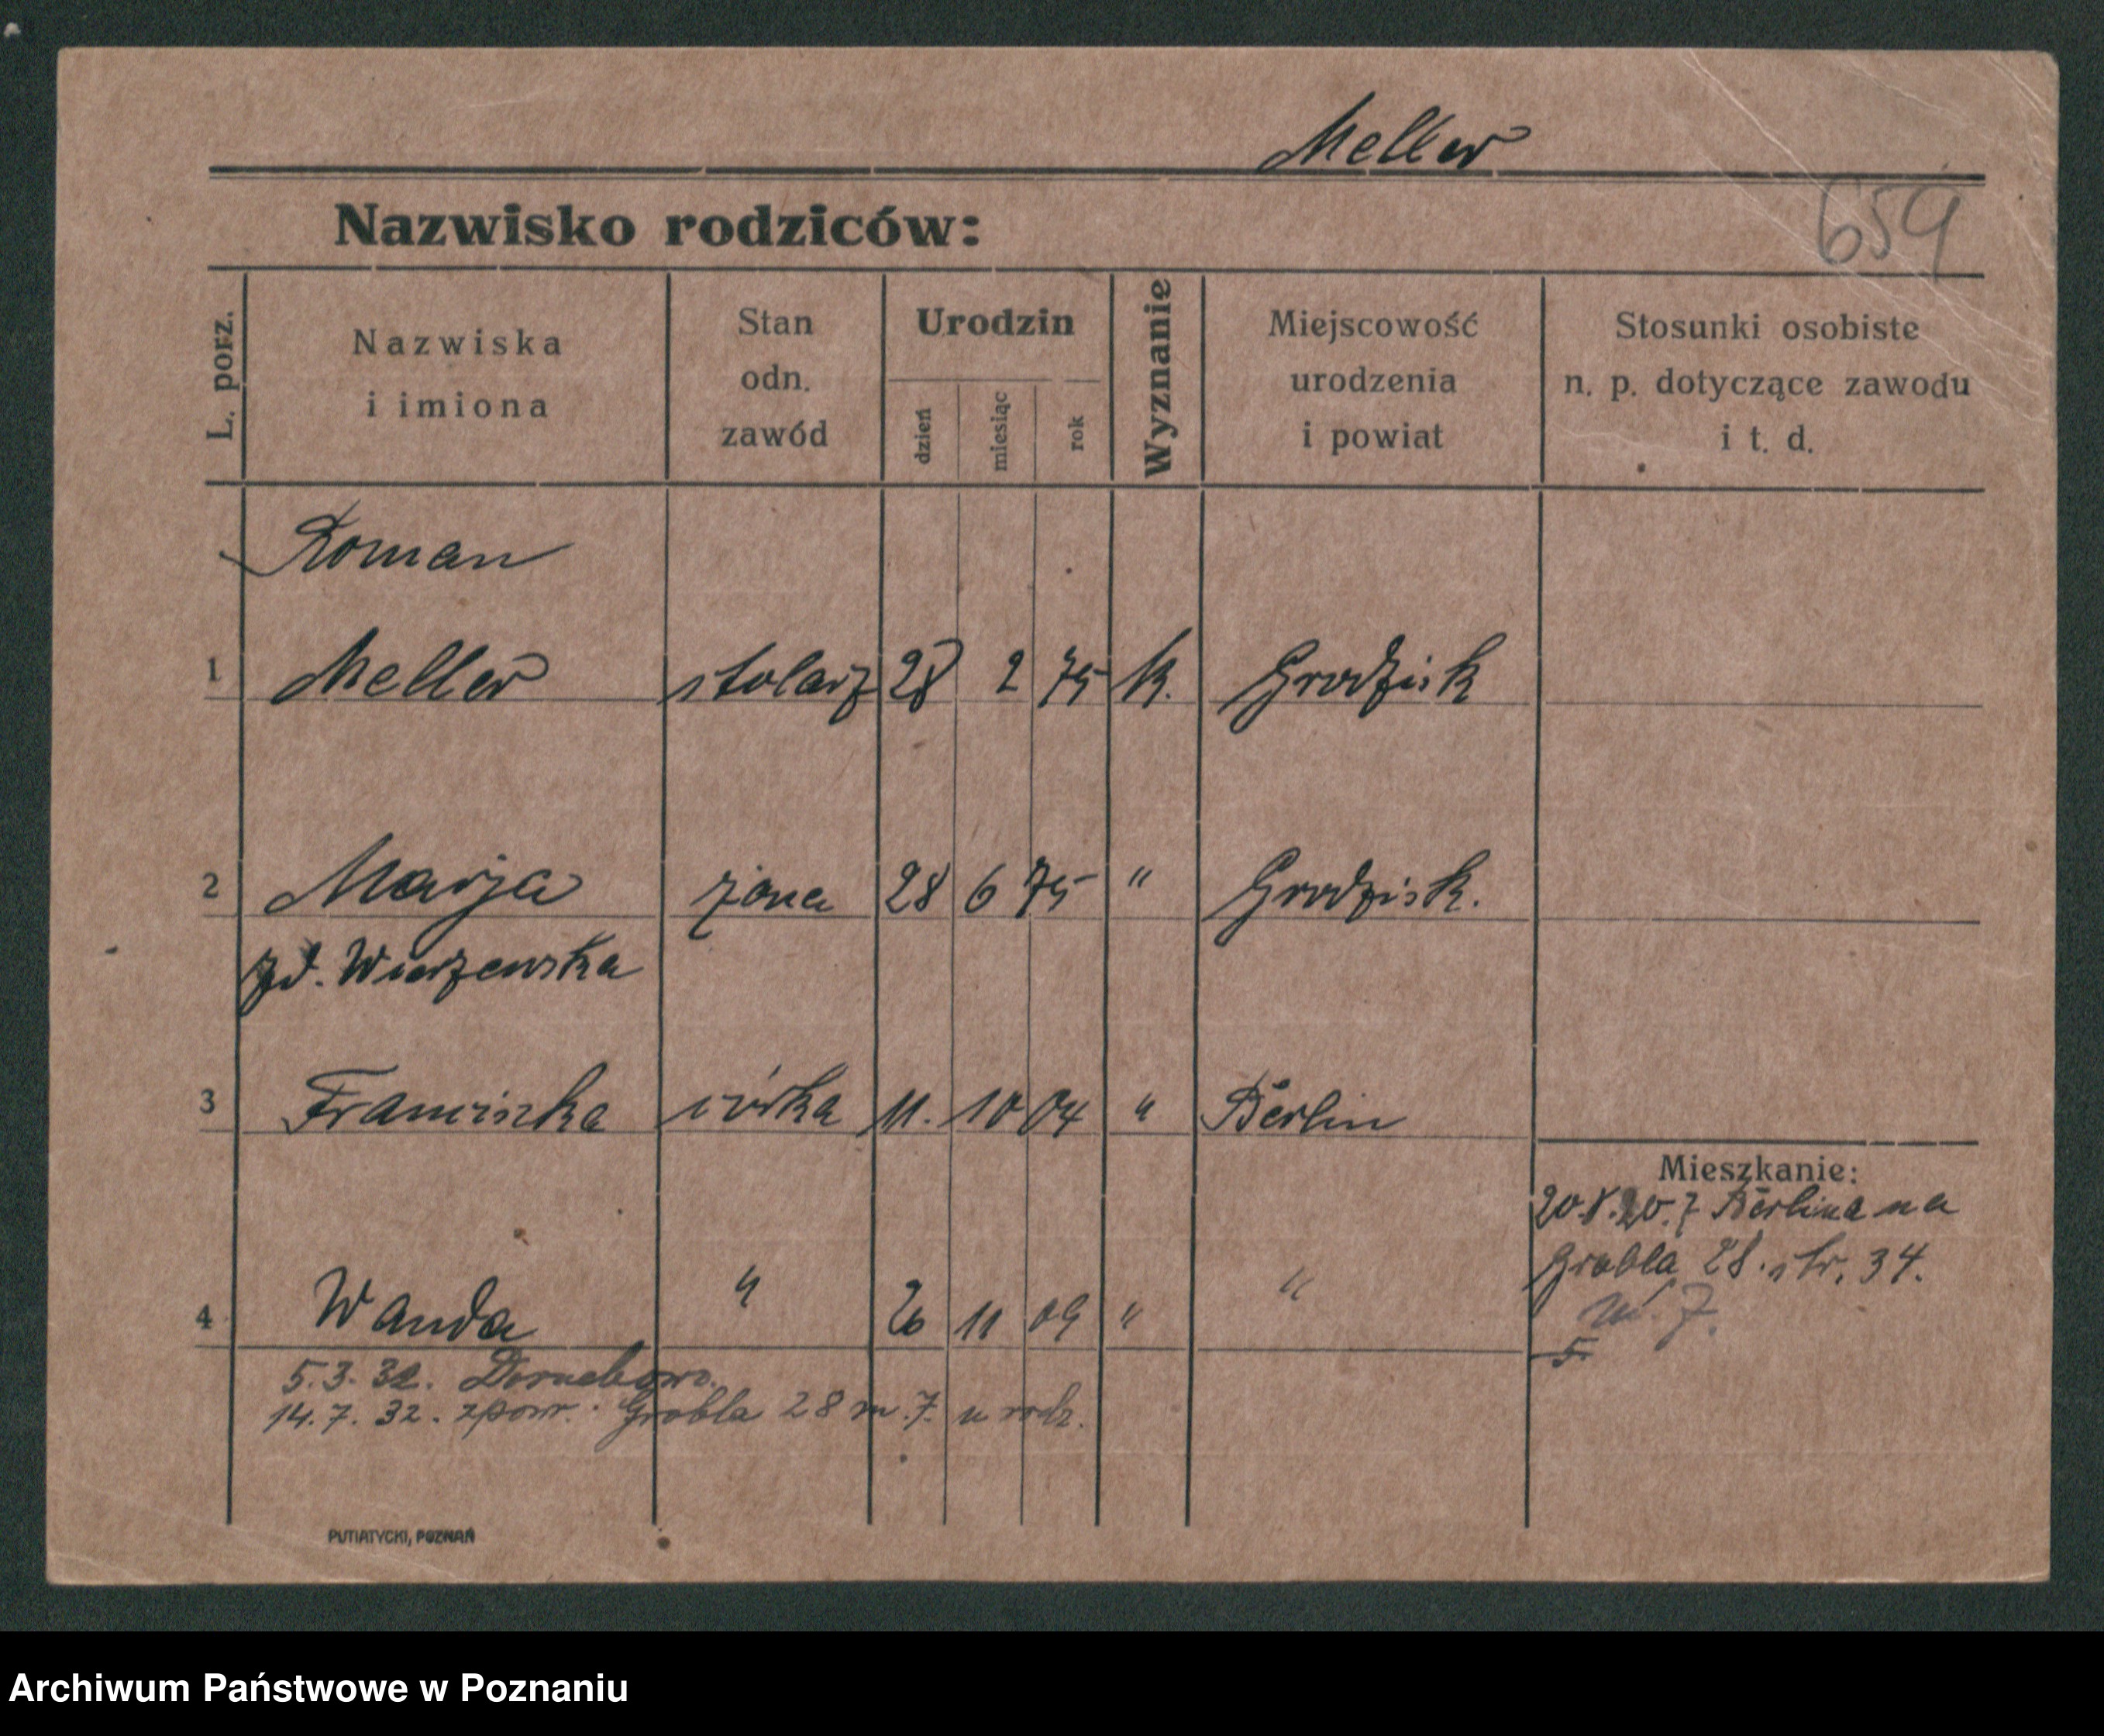 Meller
659
Nazwisko rodziców:
L. porz.
Nazwiska
i imiona
Stan
odn.
zawód
Urodzin
dzień
miesiąc
rok
Wyznanie
Miejscowość
urodzenia
i powiat
Stosunki osobiste
n. p. dotyczące zawodu
i t. d.
Roman
1 Meller stolarz 28 2 75 k. Grodzisk
2 Marja żona 28 6 75 " Grodzisk.
zd. Wierzewska
3 Franciszka córka 11. 10 04 " Berlin
Mieszkanie:
20.8.20. z Berlina na
Grobla 28. str. 34.
m. 7.
5
4 Wanda " 26 11 09 " "
5.3.32.
14.7.32. zpow. Grobla 28 m. 7. u rodz.
PUTIATYCKI, POZNAŃ
Archiwum Państwowe w Poznaniu